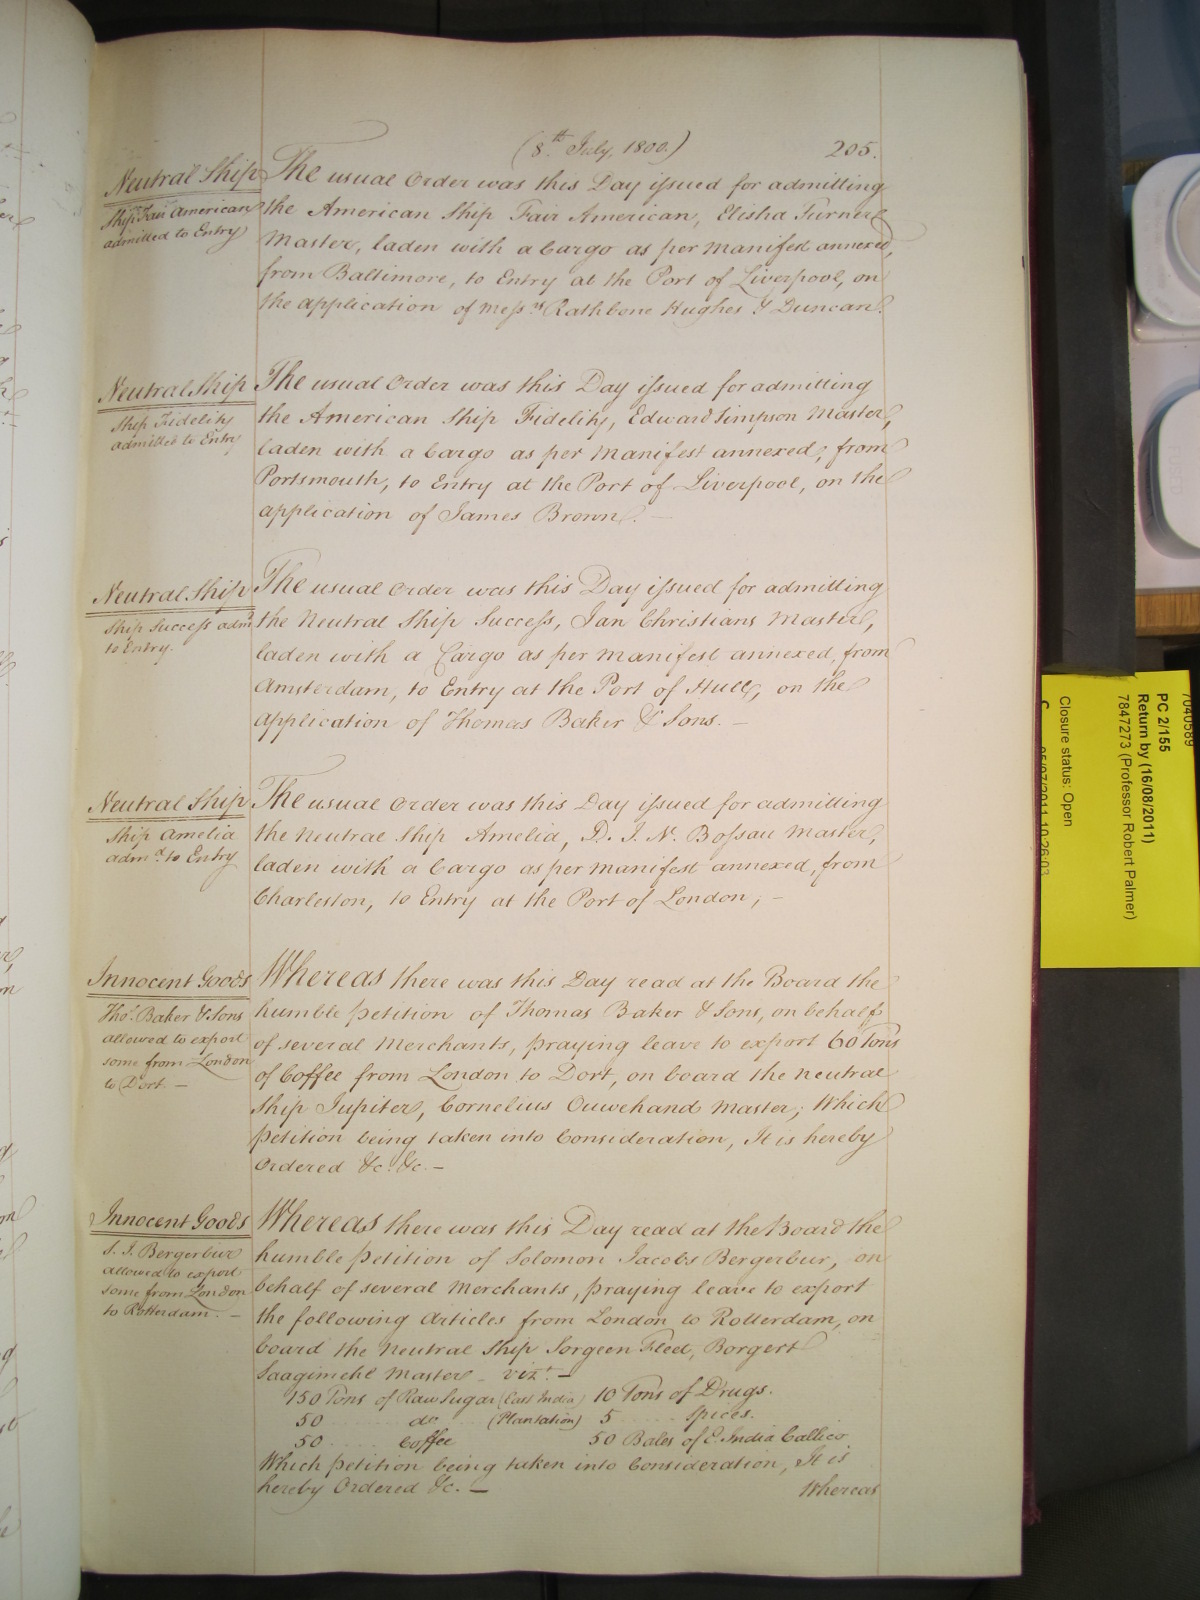 (8th July, 1800.) 205.
Neutral Ship
Ship Fair American
admitted to Entry
The usual Order was this Day issued for admitting
the American Ship Fair American, Elisha Turner
Master, laden with a Cargo as per Manifest annexed,
from Baltimore, to Entry at the Port of Liverpool, on
the application of Messrs Rathbone Hughes & Duncan.
Neutral Ship
Ship Fidelity
admitted to Entry
The usual Order was this Day issued for admitting
the American Ship Fidelity, Edward Simpson Master,
laden with a Cargo as per Manifest annexed; from
Portsmouth, to Entry at the Port of Liverpool, on the
application of James Brown. —
Neutral Ship
Ship Success admd
to Entry.
The usual Order was this Day issued for admitting
the Neutral Ship Success, Jan Christians Master,
laden with a Cargo as per Manifest annexed, from
Amsterdam, to Entry at the Port of Hull, on the
application of Thomas Baker & Sons. —
Neutral Ship
Ship Amelia
admd to Entry
The usual Order was this Day issued for admitting
the Neutral Ship Amelia, D. J. N. Bossau Master,
laden with a Cargo as per Manifest annexed, from
Charleston, to Entry at the Port of London, —
Innocent Goods
Thos Baker & Sons
allowed to export
some from London
to Dort. —
Whereas there was this Day read at the Board the
humble Petition of Thomas Baker & Sons, on behalf
of several Merchants, praying leave to export 60 Tons
of Coffee from London to Dort, on board the Neutral
Ship Jupiter, Cornelius Ouwehand Master; Which
Petition being taken into Consideration, It is hereby
Ordered &c. &c. —
Innocent Goods
S. J. Bergerbur
allowed to export
some from London
to Rotterdam. —
Whereas there was this Day read at the Board the
humble Petition of Solomon Jacobs Bergerbur, on
behalf of several Merchants, praying leave to export
the following Articles from London to Rotterdam, on
board the Neutral Ship Sorgeen Fleed, Borgert
Master - vizt. —
150 Tons of Raw Sugar (East India) 10 Tons of Drugs.
50 ...... do ... (Plantation) 5 ...... Spices.
50 ...... Coffee 50 Bales of E. India Callico
Which Petition being taken into Consideration, It is
hereby Ordered &c. —
Whereas
7040589
PC 2/155
Return by (16/08/2011)
7847273 (Professor Robert Palmer)
Closure status: Open